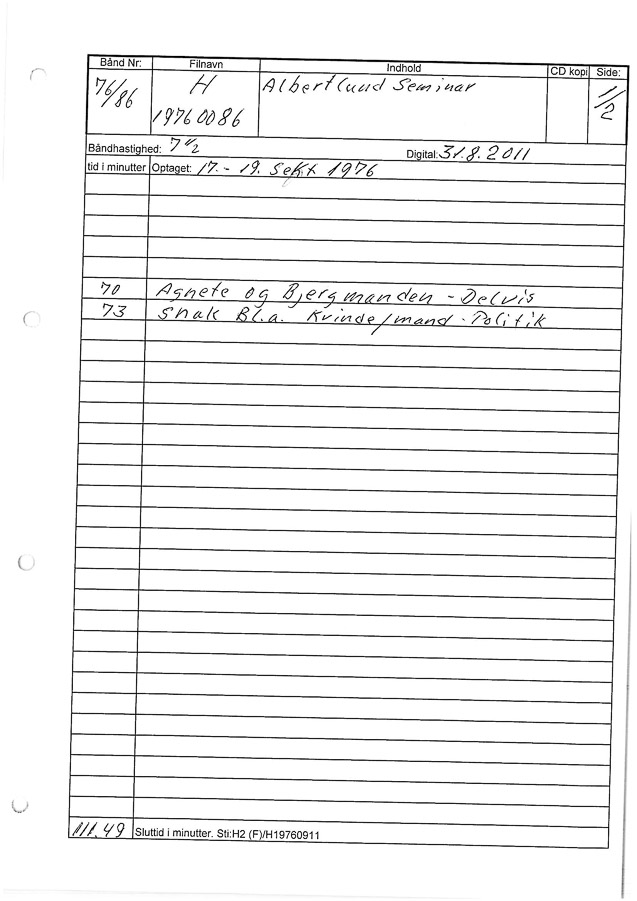 Bånd Nr: Filnavn Indhold CD kopi Side:
76/86 H 19760086 Albertlund Seminar 1/2
Båndhastighed: 7 1/2 Digital: 31.8.2011
tid i minutter Optaget: 17.- 19. Sept 1976
70 Agnete og Bjergmanden - Delvis
73 Snak Bl.a. Kvinde/mand - Politik
111.49 Sluttid i minutter. Sti:H2 (F)/H19760911